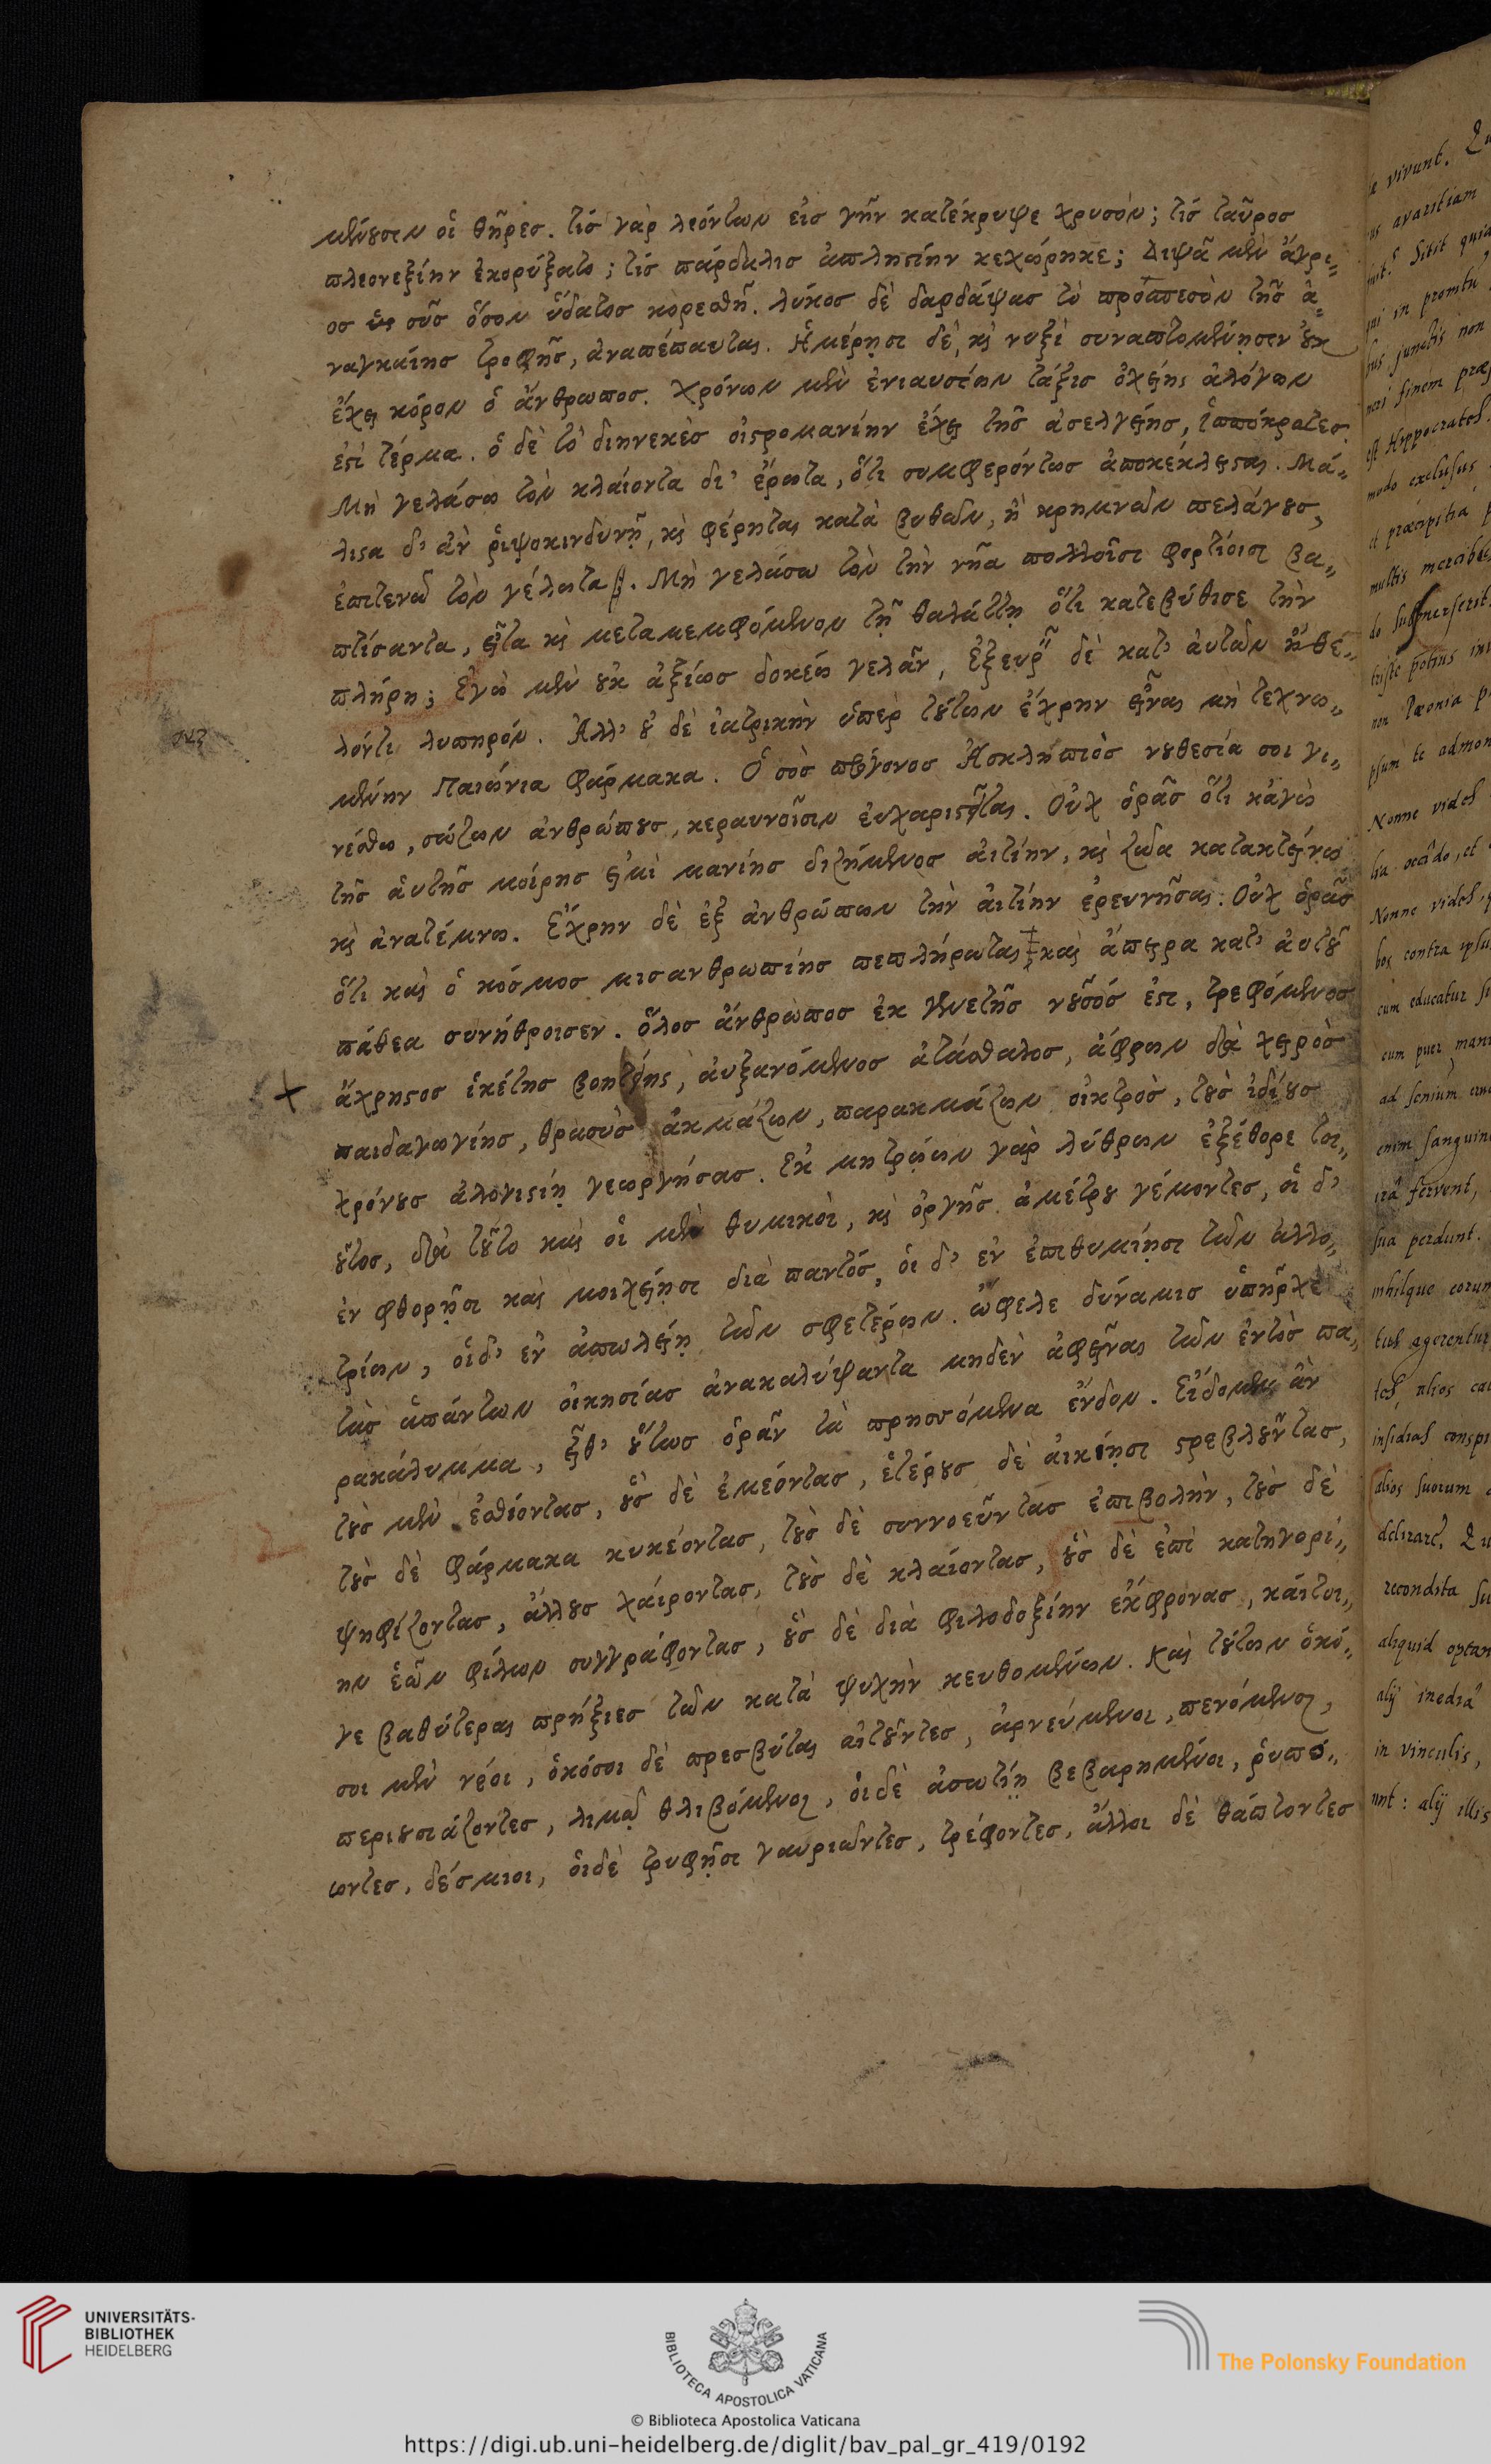 μένουσιν οἱ θῆρεσ. τίσ γὰρ λεόντων εἰσ γῆν κατέκρυψε χρυσόν; τίσ ταῦροσ
πλεονεξίην ἐκορύξατο; τίσ πάρδαλισ ἀπληστίην κεχώρηκε; Διψᾷ μὲν ἄγρι„
οσ σῦσ ὅσον ὕδατοσ κορεσθῇ. λύκοσ δὲ δαρδάψασ τὸ πρόσπεσὸν τῆσ ἀ„
ναγκαίησ τροφῆσ, ἀναπέπαυται. Ἡμέρῃσι δὲ, καὶ νυξὶ συναπτομένῃσιν οὐκ
ἔχει κόρον ὁ ἄνθρωποσ. Χρόνων μὲν ἐνιαυσίων τάξισ ὀχείησ ἀλόγων
ἐστὶ τέρμα. ὁ δὲ τὸ διηνεκὲσ οἰστρομανίην ἔχει τῆσ ἀσελγείησ, Ἱππόκρατεσ.
Μὴ γελάσω τὸν κλαίοντα δι' ἔρωτα, ὅτι συμφερόντωσ ἀποκέκλεισαι. Μά„
λιστα δ' ἀν ῥιψοκινδυνῇ, καὶ φέρηται κατὰ βυθῶν, ἢ κρημνῶν πελάγουσ,
ἐπιτενῶ τὸν γέλωτα. Μὴ γελάσω τὸν τὴν νῆα πολλοῖσι φορτίοισι βα„
πτίσαντα, εἶτα καὶ μεταμεμφόμενον τῇ θαλάττῃ ὅτι κατεβύθισε τὴν
πλήρη; Ἐγὼ μὲν οὐκ ἀξίωσ δοκέω γελᾶν, ἐξευρεῖν δὲ κατ' ἀυτῶν ἤθε„
λόν τι λυπηρόν. Ἀλλ' οὐ δὲ ἰατρικὴν ὑπὲρ τούτων ἐχρῆν εἶναι μὴ τεχνω„
μένην Παιώνια φάρμακα. Ὁ σὸσ πρόγονοσ Ἀσκληπιὸσ νουθεσία σοι γι„
νέσθω, σώζων ἀνθρώπουσ, κεραυνοῖσιν εὐχαριστεῖται. Οὐχ ὁρᾶσ ὅτι κἀγὼ
τῆσ ἀυτῆσ μοίρησ εἰμὶ μανίησ διζήμενοσ ἀιτίην, καὶ ζῶα κατακτείνω
καὶ ἀνατέμνω. Ἐχρῆν δὲ ἐξ ἀνθρώπων τὴν ἀιτίην ἐρευνῆσαι. Οὐχ ὁρᾶσ
ὅτι καὶ ὁ κόσμοσ μισανθρωπίησ πεπλήρωται καὶ ἄπειρα κατ' ἀυτοῦ
πάθεα συνήθροισεν. ὅλοσ ἄνθρωποσ ἐκ γενετῆσ νοῦσόσ ἐστι, τρεφόμενοσ
ἄχρηστοσ ἱκέτησ βοηθείησ, ἀυξανόμενοσ ἀτάσθαλοσ, ἄφρων διὰ χειρὸσ
παιδαγωγίησ, θρασὺσ ἀκμάζων, παρακμάζων οἰκτρὸσ, τοὺσ ἰδίουσ
χρόνουσ ἀλογιστίῃ γεωργήσασ. Ἐκ μητρώων γὰρ λύθρων ἐξέθορε τοι„
οῦτοσ, διὰ τοῦτο καὶ οἱ μὲν θυμικοὶ, καὶ ὀργῆσ ἀμέτρου γέμοντεσ, οἱ δ'
ἐν φθορῇσι καὶ μοιχείῃσι διὰ παντόσ, οἱ δ' ἐν ἐπιθυμίῃσι τῶν ἀλλο„
τρίων, οἱ δ' ἐν ἀπωλείῃ τῶν σφετέρων. ὤφελε δύναμισ ὑπῆρχε
τὰσ ἁπάντων οἰκησίασ ἀνακαλύψαντα μηδὲν ἀφεῖναι τῶν ἐντὸσ πα„
ρακάλυμμα, εἶθ' οὕτωσ ὁρᾶν τὰ πρησσόμενα ἔνδον. Εἴδομεν ἂν
τοὺσ μὲν ἐσθίοντασ, οὓσ δὲ ἐμέοντασ, ἑτέρουσ δὲ ἀικίῃσι στρεβλοῦντασ,
τοὺσ δὲ φάρμακα κυκέοντασ, τοὺσ δὲ συννοεῦντασ ἐπιβολὴν, τοὺσ δὲ
ψηφίζοντασ, ἄλλουσ χαίροντασ, τοὺσ δὲ κλαίοντασ, οὓσ δὲ ἐπὶ κατηγορί„
ην ἑῶν φίλων συγγράφοντασ, οὓσ δὲ διὰ φιλοδοξίην ἔκφρονασ, καίτοι„
γε βαθύτεραι πρήξιεσ τῶν κατὰ ψυχὴν κευθομένων. Καὶ τούτων ὁκό„
σοι μὲν νέοι, ὁκόσοι δὲ πρεσβύται αἰτοῦντεσ, ἀρνεύμενοι, πενόμενοι,
περιουσιάζοντεσ, λιμῷ θλιβόμενοι, οἱ δὲ ἀσωτίῃ βεβαρημένοι, ῥυπό„
ωντεσ, δέσμιοι, οἱ δὲ τρυφῇσι γαυριῶντεσ, τρέφοντεσ, ἄλλοι δὲ θάπτοντεσ
vivunt.
avaritiam
Sitit quia
in promtu
junctis non
finem
est Hyppocrates.
modo exclusus
et præcipitia
multis mercibus
do submerserit
triste potius
non Pæonia
psum te admon
Nonne vides
lia occido, et
Nonne vides
contra ipsu
cum educatur
cum puer
ad senium
enim sanguin
irâ fervent,
sua perdunt.
nihilque eorum
agerentur
alios
insidias conspi
alios suorum
delirare?
recondita
aliquid optan
alij inediâ
in vinculis,
unt: alij illis
UNIVERSITÄTS-
BIBLIOTHEK
HEIDELBERG
BIBLIOTECA APOSTOLICA VATICANA
The Polonsky Foundation
© Biblioteca Apostolica Vaticana
https://digi.ub.uni-heidelberg.de/diglit/bav_pal_gr_419/0192